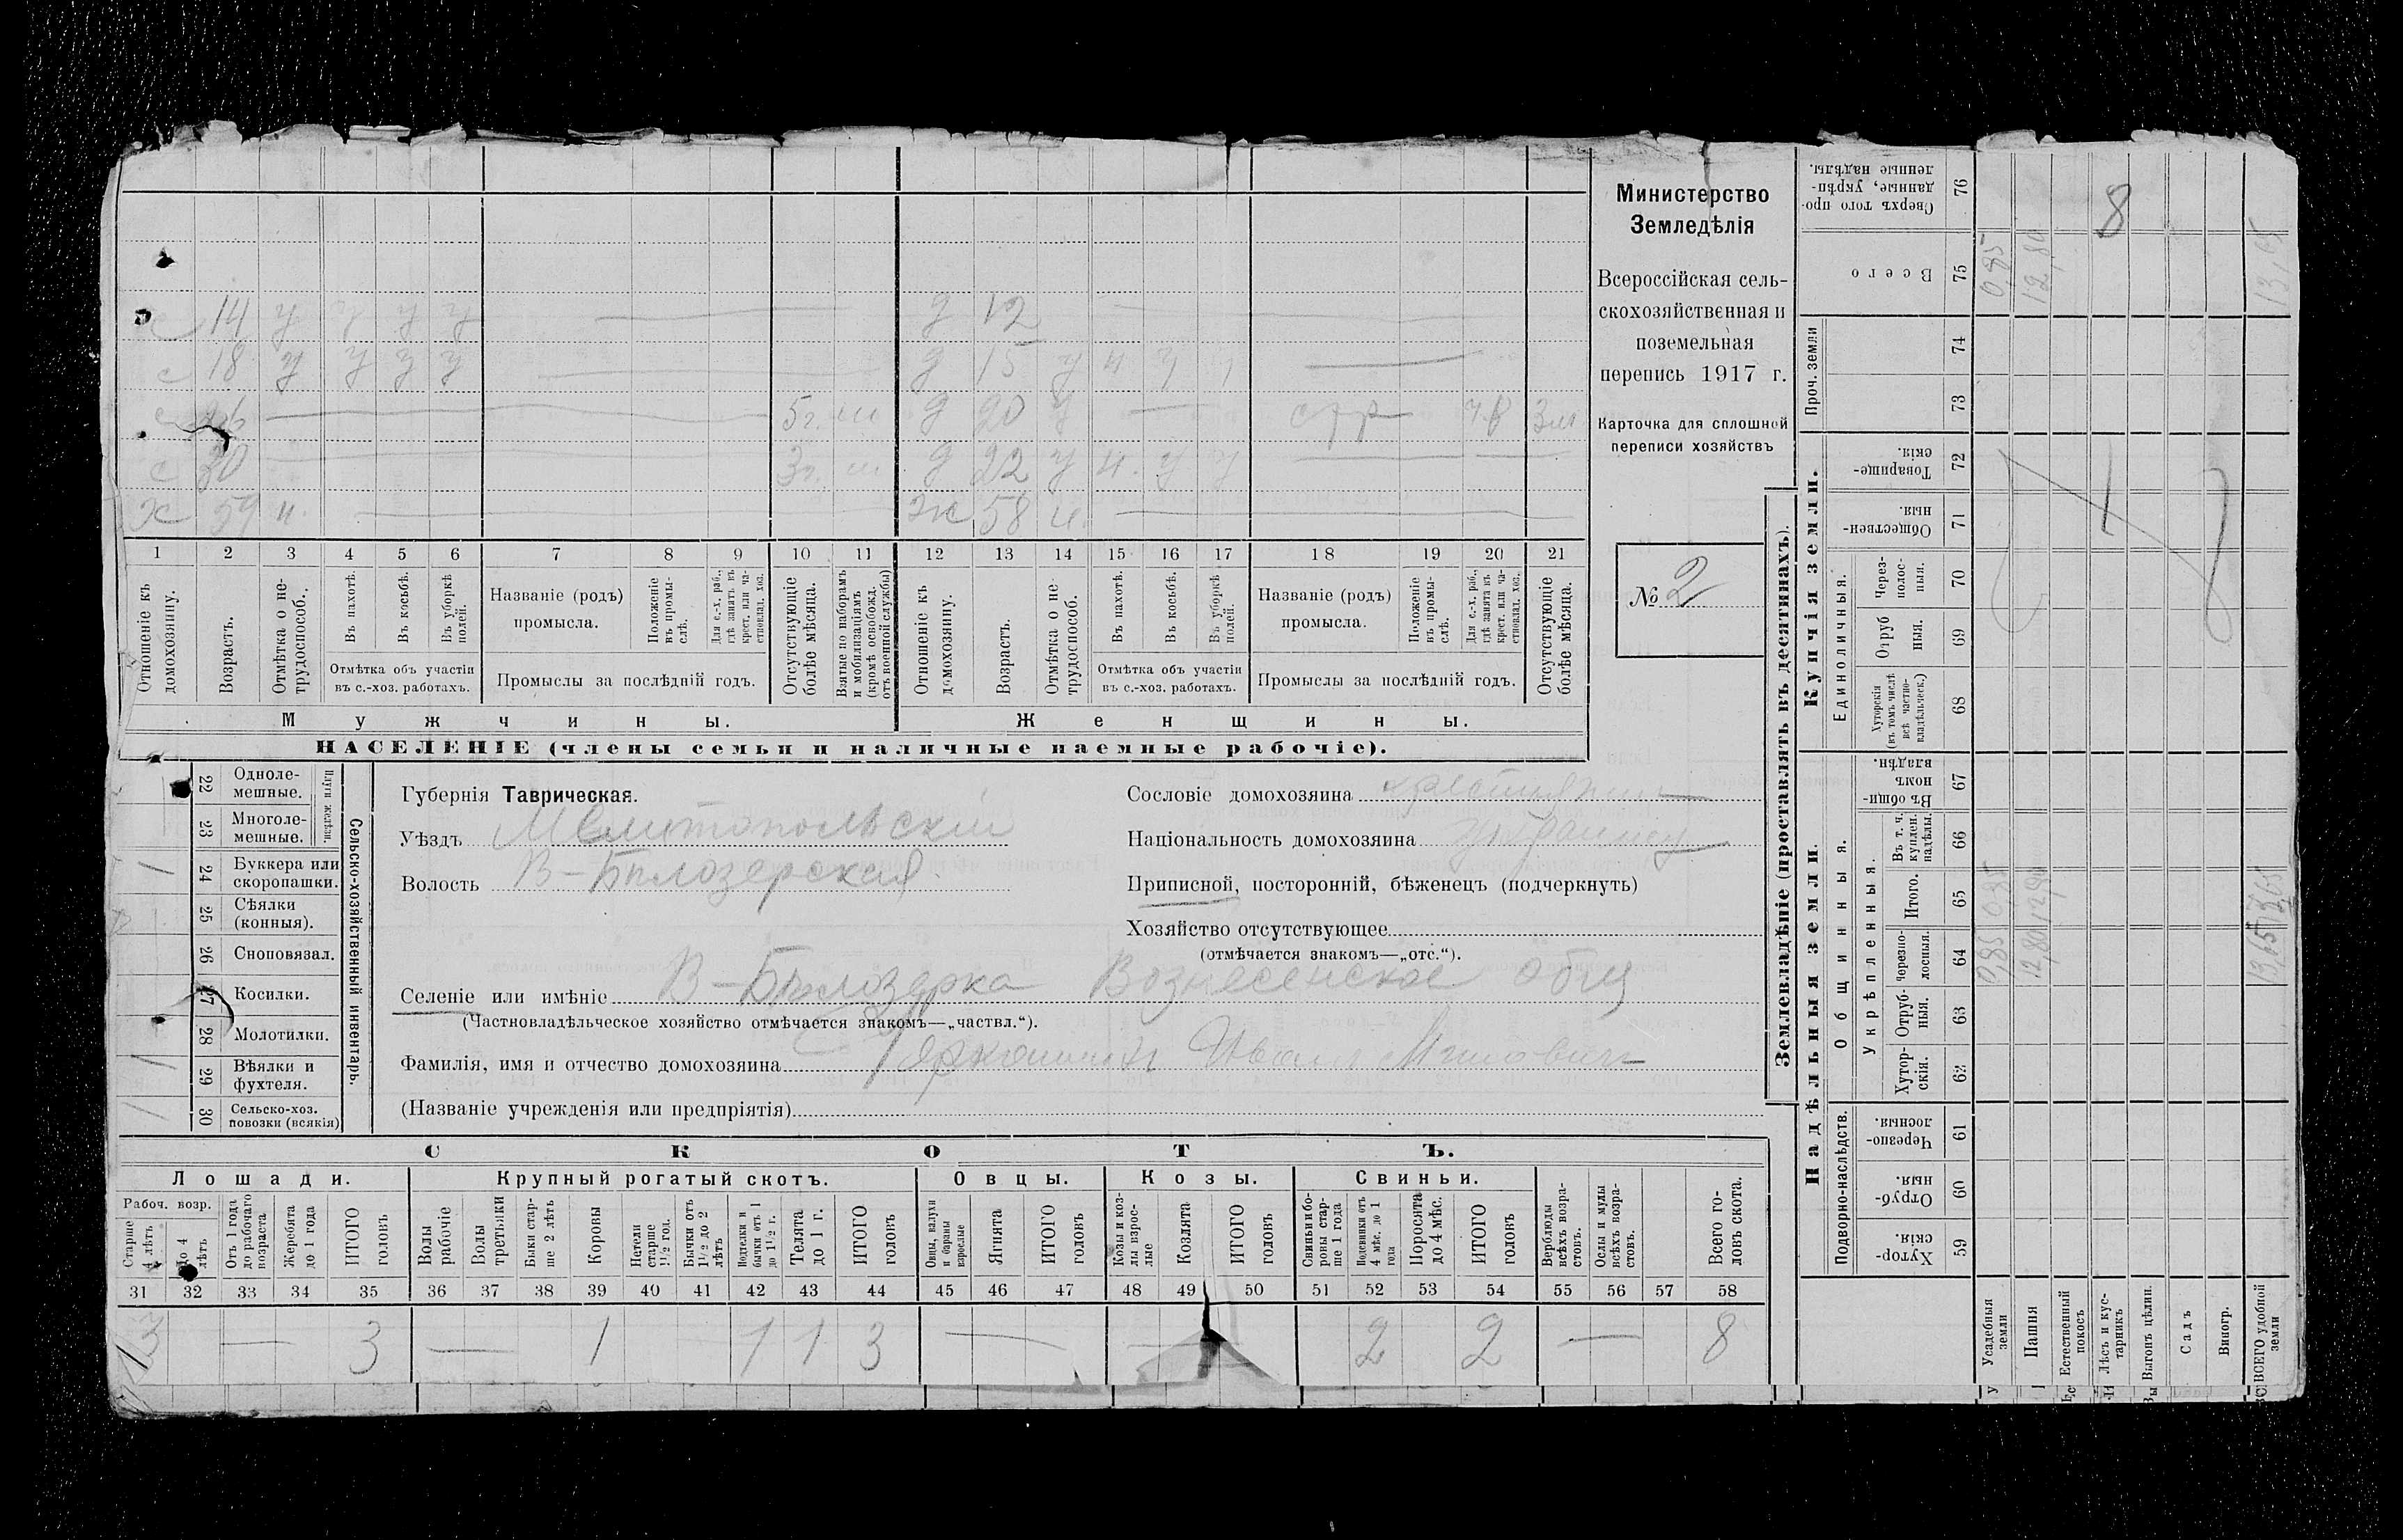 Министерство
Земледѣлія
Всероссійская сель-
скохозяйственная и
поземельная
перепись 1917 г.
Карточка для сплошной
переписи хозяйствъ
№ 2
с 14 у у у у — д 12 —
с 18 у у у у — д 15 у н у у —
с — 5г. ш д 20 у — 3м
с 30 — 3г. ш д 22 у н. у у —
х 59 н. — ж 58 н. —
1 2 3 4 5 6 7 8 9 10 11 12 13 14 15 16 17 18 19 20 21
Отношеніе къ домохозяину.
Возрастъ.
Отмѣтка о не-трудоспособ.
Въ пахотѣ.
Въ косьбѣ.
Въ уборкѣ полей.
Отмѣтка объ участіи въ с.-хоз. работахъ.
Названіе (родъ) промысла.
Положеніе въ промы-слѣ.
Для с.-х. раб., гдѣ занятъ въ крест. или ча-стновлад. хоз.
Промыслы за послѣдній годъ.
Отсутствующіе болѣе мѣсяца.
Взятые по наборамъ и мобилизаціямъ (кромѣ освобожд. отъ военной службы)
Отношеніе къ домохозяину.
Возрастъ.
Отмѣтка о не-трудоспособ.
Въ пахотѣ.
Въ косьбѣ.
Въ уборкѣ полей.
Отмѣтка объ участіи въ с.-хоз. работахъ.
Названіе (родъ) промысла.
Положеніе въ промы-слѣ.
Для с.-х. раб., гдѣ занята въ крест. или ча-стновлад. хоз.
Промыслы за послѣдній годъ.
Отсутствующіе болѣе мѣсяца.
Мужчины. Женщины.
НАСЕЛЕНІЕ (члены семьи и наличные наемные рабочіе).
Сельско-хозяйственный инвентарь.
Плуги желѣзн.
22 Одноле-мешные.
23 Многоле-мешные.
24 Буккера или скоропашки. 1
25 Сѣялки (конныя).
26 Сноповязал.
27 Косилки.
28 Молотилки.
29 Вѣялки и фухтеля. 1
30 Сельско-хоз. повозки (всякія) 1
Губернія Таврическая.
Уѣздъ Мелитопольскій
Волость В-Бѣлозерская
Сословіе домохозяина крестьянинъ
Національность домохозяина украинец
Приписной, посторонній, бѣженецъ (подчеркнуть)
Хозяйство отсутствующее
(отмѣчается знакомъ—„отс.“).
Селеніе или имѣніе В-Бѣлозерка Вознесенское общ
(Частновладѣльческое хозяйство отмѣчается знакомъ—„частвл.“).
Фамилія, имя и отчество домохозяина Иванъ
(Названіе учрежденія или предпріятія)
СКОТЪ.
Лошади. Крупный рогатый скотъ. Овцы. Козы. Свиньи.
Рабоч. возр.
Старше 4 лѣтъ
До 4 лѣтъ
Отъ 1 года до рабочаго возраста
Жеребята до 1 года
ИТОГО головъ
Волы рабочіе
Волы третьяки
Быки стар-ше 2 лѣтъ
Коровы
Нетели старше 1 1/2 год.
Бычки отъ 1 1/2 до 2 лѣтъ
Подтелки и бычки отъ 1 до 1 1/2 г.
Телята до 1 г.
ИТОГО головъ
Овцы, валухи и бараны взрослые
Ягнята
ИТОГО головъ
Козы и коз-лы взрос-лые
Козлята
ИТОГО головъ
Свиньи и бо-ровы стар-ше 1 года
Подсвинки отъ 4 мѣс. до 1 года
Поросята до 4 мѣс.
ИТОГО головъ
Верблюды всѣхъ возра-стовъ.
Ослы и мулы всѣхъ возра-стовъ.
Всего го-ловъ скота.
31 32 33 34 35 36 37 38 39 40 41 42 43 44 45 46 47 48 49 50 51 52 53 54 55 56 57 58
3 — 3 — 1 1 1 3 — — 2 2 — 8
Землевладѣніе (проставлять въ десятинахъ).
Купчія земли.
Надѣльныя земли.
Сверхъ того про-данные, укрѣп-ленные надѣлы. 76 8
Всего 75 0,85 12,80 13,65
Проч. земли 74
73
Товарище-скія. 72
Обществен-ныя. 71
Единоличныя.
Через-полос-ныя. 70
Отруб-ныя. 69
Хуторскія (въ томъ числѣ всѣ частно-владѣльческ.) 68
Общинныя.
Въ общи-номъ владѣн. 67
Укрѣпленныя.
Въ т. ч. куплен. надѣлы. 66
Итого. 65 0,85 12,80 13,65
Черезпо-лосныя. 64 0,85 12,80 13,65
Отруб-ныя. 63
Хутор-скія. 62
Подворно-наслѣдств.
Черезпо-лосныя. 61
Отруб-ныя. 60
Хутор-скія. 59
Усадебныя земли
Пашня
Естественный покосъ
Лѣсъ и кус-тарникъ
Выгонъ цѣлин.
Садъ
Виногр.
ВСЕГО удобной земли